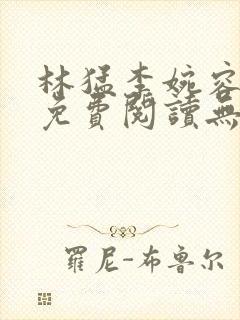 林猛李婉容
免費閱讀無
羅尼-布魯尔